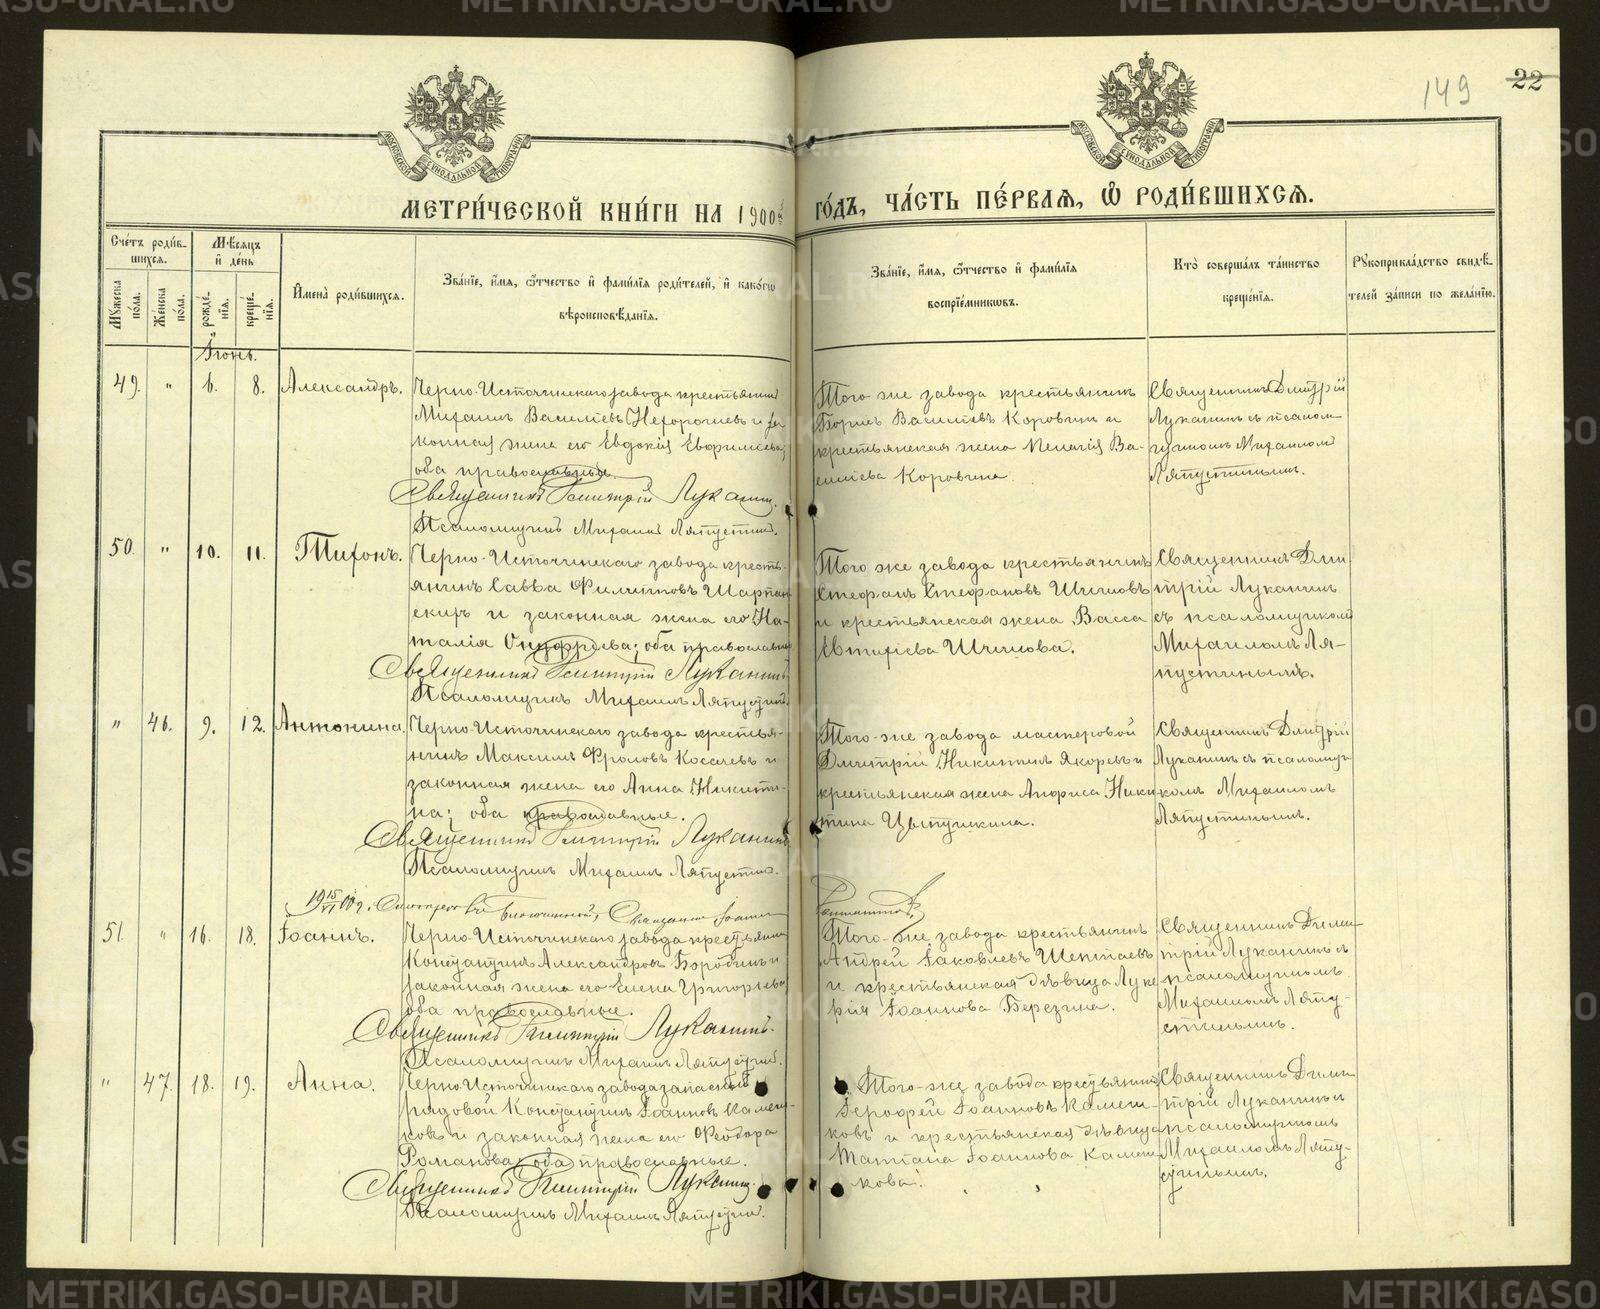 METRIKI.GASO-URAL.RU
149 22
МОСКОВСКОЙ СѴНОДАЛЬНОЙ ТИПОГРАФІИ
МОСКОВСКОЙ СѴНОДАЛЬНОЙ ТИПОГРАФІИ
МЕТРИ́ЧЕСКОЙ КНИ́ГИ НА 1900й ГО́ДЪ, ЧА́СТЬ ПЕ́РВАѦ, Ѽ РОДИ́ВШИХСѦ.
Сче́тъ роди́в-
шихсѧ.
Мꙋ́жеска по́ла.
Же́нска по́ла.
Мѣ́сѧцъ и҆ де́нь
рожде́-нїѧ.
креще́-нїѧ.
И҆мена̀ роди́вшихсѧ.
Зва́нїе, и҆́мѧ, ѻ҆́тчество и҆ фамѝлїѧ роди́телей, и҆ како́гѡ
вѣроисповѣ́данїѧ.
Зва́нїе, и҆́мѧ, ѻ҆́тчество и҆ фами́лїѧ
воспрїе́мниковъ.
Кто̀ соверша́лъ та́инство
креще́нїѧ.
Рꙋкоприкла́дство свидѣ́-
телей за́писи по жела́нїю.
Іюнь.
49. " 6. 8. Александръ.
Черно-Источинскаго завода крестьянинъ
Михаилъ Василіевъ Нехорошевъ и за-
конная жена его Евдокія
оба православные.
Священникъ Димитрій Луканинъ.
Псаломщикъ Михаилъ Ляпустинъ.
Того-же завода крестьянинъ
Борисъ Василіевъ Коровинъ и
крестьянская жена Пелагія Ва-
силіева Коровина.
Священникъ Дмитрій
Луканинъ съ псалом-
щикомъ Михаиломъ
Ляпустинымъ.
50. " 10. 11. Тихонъ.
Черно-Источинскаго завода кресть-
янинъ Савва Филипповъ
и законная жена его На-
талія Онуфріева; оба православные
Священникъ Димитрій Луканинъ
Псаломщикъ Михаилъ Ляпустинъ
Того же завода крестьянинъ
Стефанъ Стефановъ Шишовъ
и крестьянская жена Васса
Евтихіева Шишова.
Священникъ Дми-
трій Луканинъ
съ псаломщикомъ
Михаиломъ Ля-
пустинымъ.
" 46. 9. 12. Антонина.
Черно-Источинскаго завода крестья-
нинъ Максимъ Фроловъ Косачевъ и
законная жена его Анна Никити-
на; оба православные.
Священникъ Димитрій Луканинъ
Псаломщикъ Михаилъ Ляпустинъ.
Того-же завода мастеровой
Дмитрій Никитинъ Якоревъ и
крестьянская жена Анфиса Ники-
тина
Священникъ Дмитрій
Луканинъ съ псаломщи-
комъ Михаиломъ
Ляпустинымъ.
51. " 16. 18. Іоаннъ.
Черно-Источинскаго завода крестьянинъ
Константинъ Александровъ Бородинъ и
законная жена его Елена Григорьева
оба православные.
Священникъ Димитрій Луканинъ.
Псаломщикъ Михаилъ Ляпустинъ.
Того-же завода крестьянинъ
Андрей Іаковлевъ Шептаевъ
и крестьянская дѣвица Луке-
рія Іоаннова Березина.
Священникъ Дими-
трій Луканинъ съ
псаломщикомъ
Михаиломъ Ляпу-
стинымъ.
" 47. 18. 19. Анна.
Черно-Источинскаго завода запасный
рядовой Константинъ Іоанновъ Камеш-
ковъ и законная жена его Феодора
Романова; оба православные.
Священникъ Димитрій Луканинъ.
Псаломщикъ Михаилъ Ляпустинъ.
Того-же завода крестьянинъ
Іерофей Іоанновъ Камеш-
ковъ и крестьянская дѣвица
Татіана Іоаннова Камеш-
кова.
Священникъ Дими-
трій Луканинъ съ
псаломщикомъ
Михаиломъ Ляпу-
стинымъ.